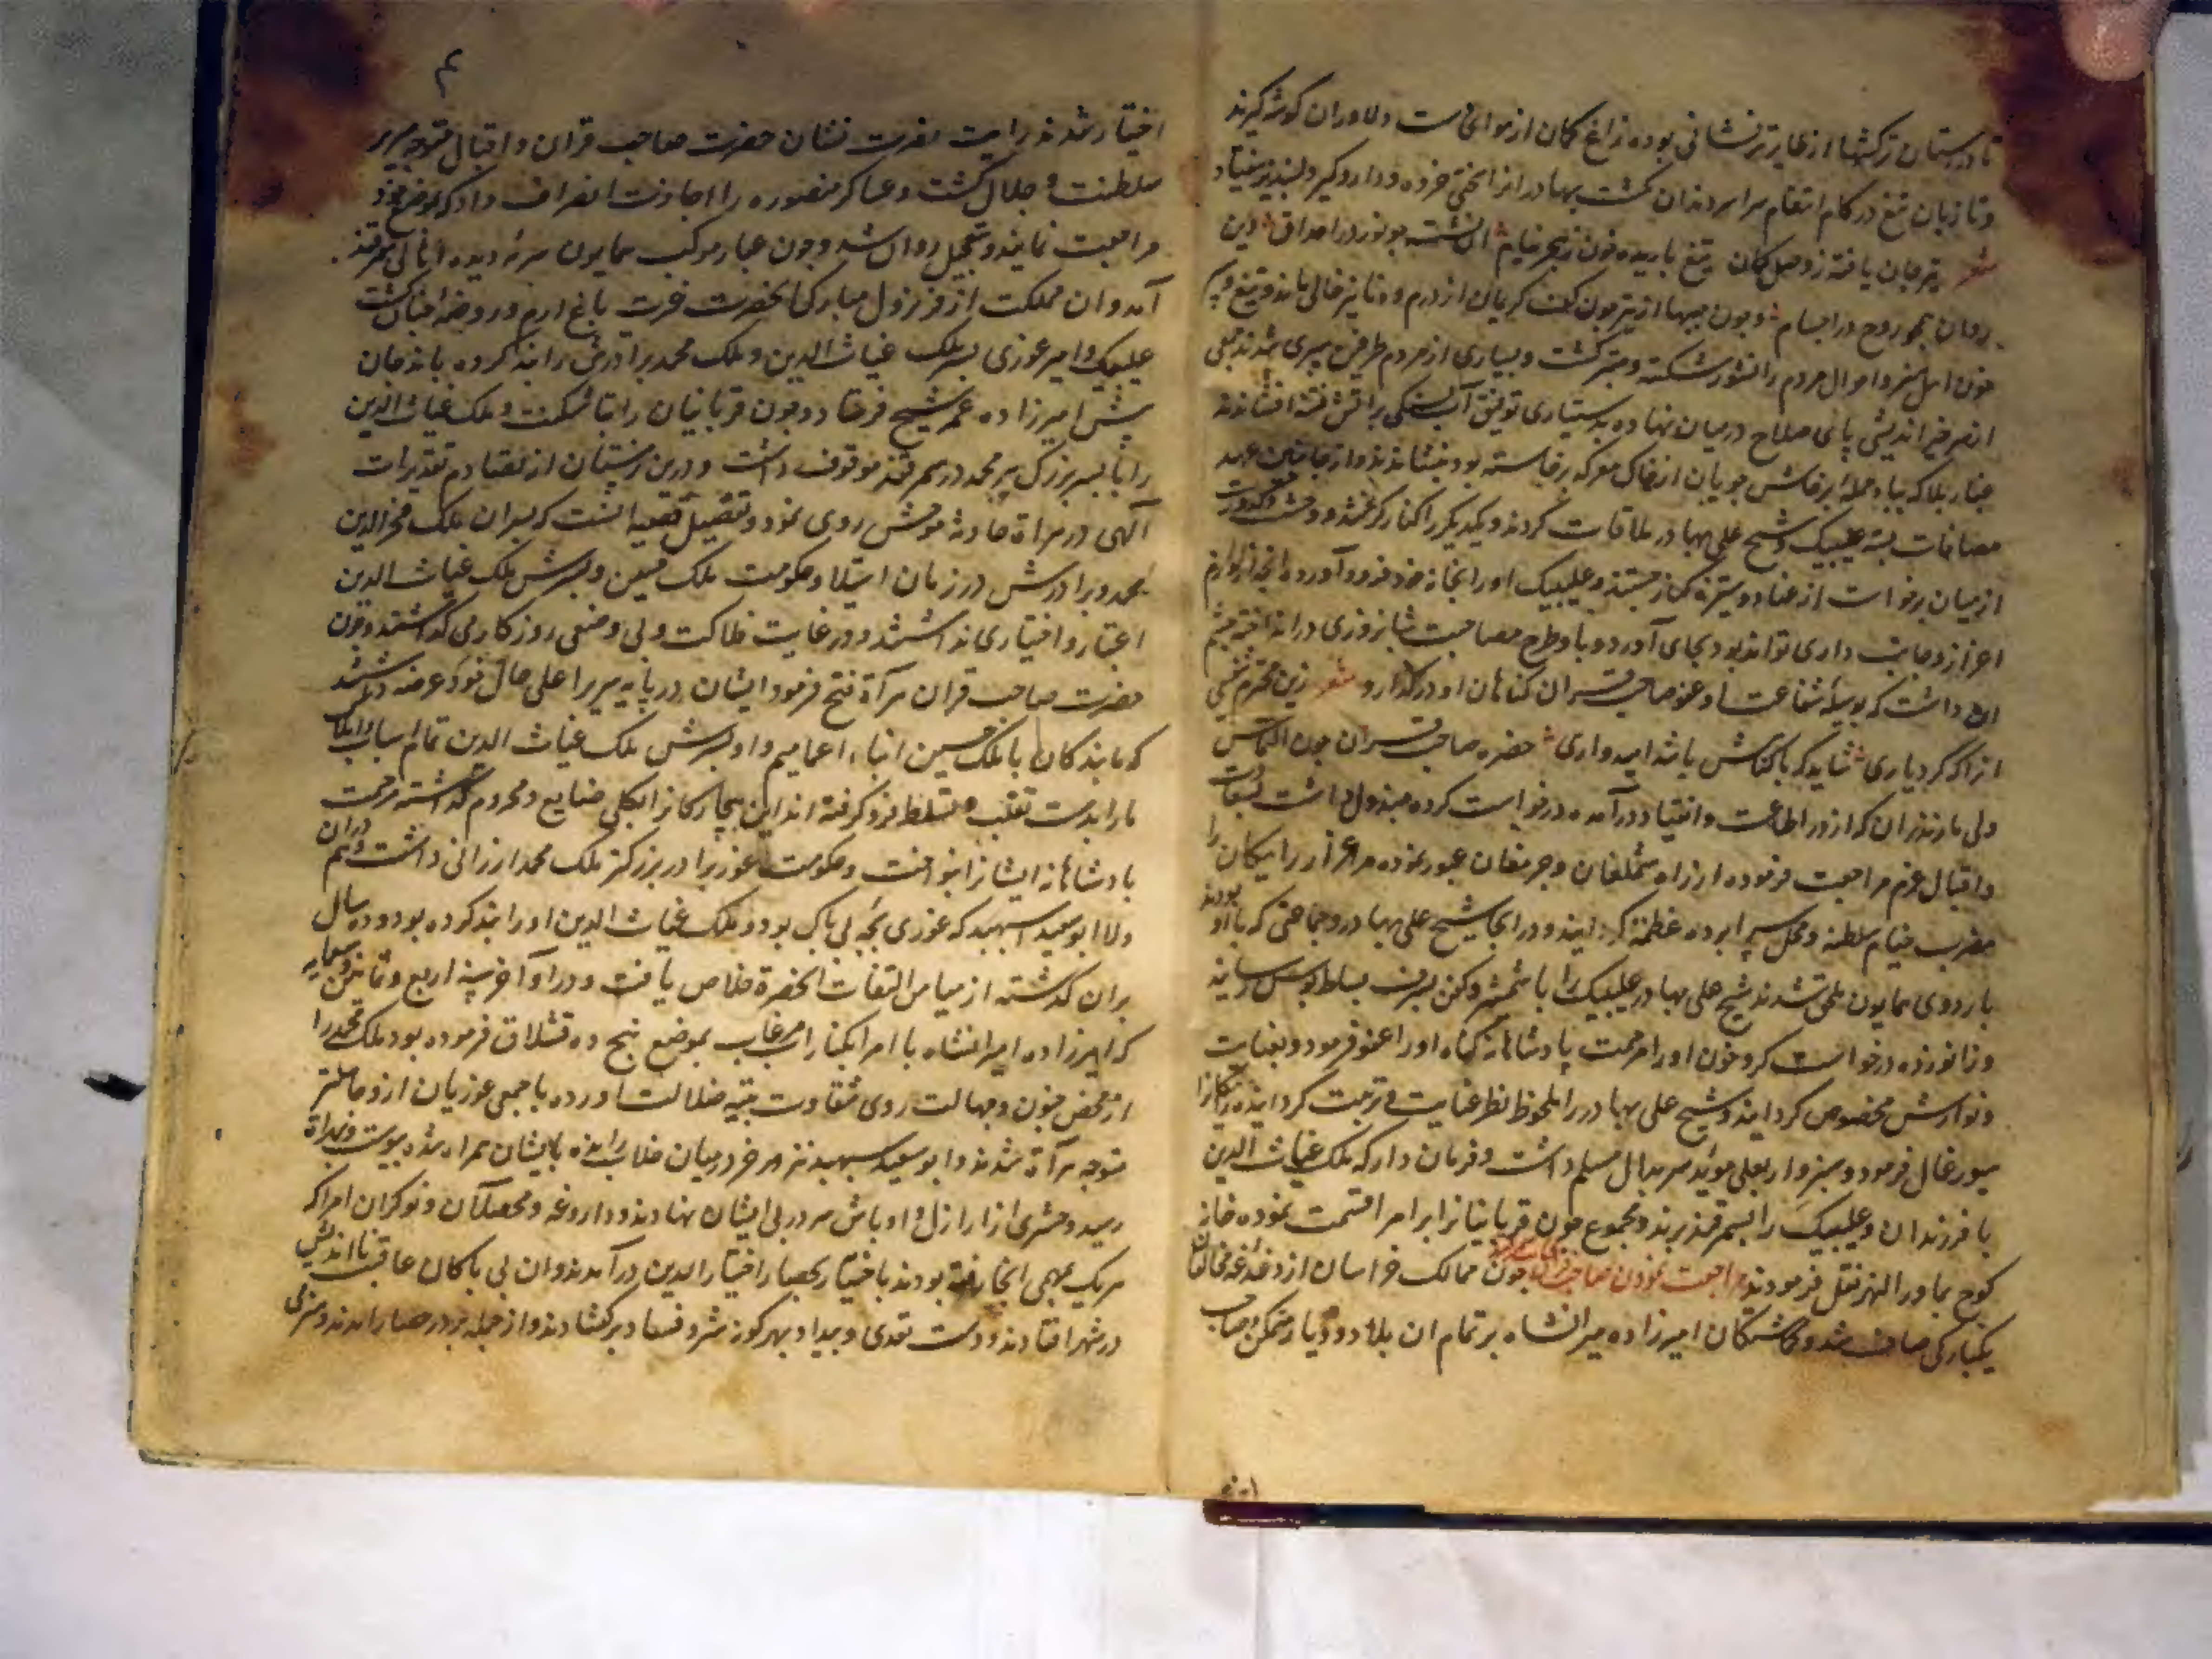 تا درستان ترکشها از طایر تیر نشانی بوده زاغ کمان از هوا نخاست و دلاوران گوشه گیرند
و تا زبان تیغ در کام انتقام سراسر دندان گشت بهادر انرا خرده و دار و گیر دلپذیر نیفتاد
شعر تیر جان یافته ز وصل کمان تیغ باریده خون ز بحر نیام این نشسته چو نور در احداق وین
روان همچو روح در اجسام و چون جیبها از تیر چون کف کریمان از درم و دنانیر خالی ماند و تیغ و سپر
چون اهل هنر و احوال مردم دانشور شکسته و مبتر گشت و بسیاری از مردم طرفین سپری شدند جمعی
از سر خیراندیشی پای صلاح در میان نهاده بدستیاری توفیق آب آشتی بر آتش فتنه افشاندند
غبار بلا که بباد حمله پرخاش جویان از خاک معرکه برخاسته بود بنشاندند و از جانبین عهد
مصافات بسته علیبیک و شیخ علی بهادر ملاقات کردند و یکدیگر را کنار گرفتند و وحشت و کدورت
از میان برخواست از عناد و ستیزه کناره جستند و علیبیک او را بخانه خود فرود آورده آنچه از لوازم
اعزاز و جانب داری تواند بود بجای آورد و با او طرح مصاحبت شبانروزی در انداخته چشم
ان داشت که بوسیله شفاعت او عفو صاحب قران گناهان او درگذارد شعر زین محترم شفیعی
انرا که کرد یاری شاید که با گناهش باشد امیدواری حضره صاحب قران چون التماس
ولی مازندران که از در اطاعت و انقیاد درآمده درخواست کرده مبذول داشت بسعادت
و اقبال عزم مراجعت فرموده از راه شملغان و جرمغان عبور نموده مرغزار رادیکان را
مضرب خیام سلطنه و محل سراپرده عظمة گردانید و در انجا شیخ علی بهادر و جماعتی که با او بودند
باردوی همایون ملحق شدند شیخ علی بهادر علیبیک را با شمشیر و کفن بشرف بساط بوس رسانید
و زانو زده درخواست کرد خون او را مرحمت پادشاهانه گناه او را عفو فرمود و بعنایت
و نوازش مخصوص گردانید و شیخ علی بهادر را ملحوظ نظر عنایت و تربیت گردانیده رادکان را
سیورغال فرمود و سبزوار بعلی مؤید سربدال مسلم داشت و فرمان داد که ملک غیاث الدین
با فرزندان و علیبیک را بسمرقند برند و مجموع جون قربانیان را بر امرا قسمت نموده خانه
کوچ بماوراالنهر نقل فرمودند مراجعت نمودن صاحب قران چون ممالک خراسان از دغدغه مخالفان
یکبارگی صافی شد و گماشتگان امیرزاده میرانشاه بر تمام ان بلاد و دیار متمکن و صاحب
۴
اختیار شدند رایت نصرت نشان حضرت صاحب قران و اقبال متوجه سریر
سلطنت و جلال گشت و عساکر منصوره را اجازت انصراف داد که بموضع خود
مراجعت نمایند و بتعجیل روان شد و چون غبار موکب همایون سرمه دیده اهالی سمرقند
آمد و ان مملکت از فر نزول مبارک انحضرت غیرت باغ ارم و روضه جنان گشت
علیبیک و امیر غوری پسر ملک غیاث الدین و ملک محمد برادرش را بند کرده باندجان
پیش امیرزاده عمر شیخ فرستاد و جون قربانیان را بتاشکنت و ملک غیاث الدین
را با پسر بزرگ پیر محمد در سمرقند موقوف داشت و درین زمستان از تصادم تقدیرات
الهی در هراة حادثه موحش روی نمود و تفصیل قضیه انست که پسران ملک فخرالدین
محمد و برادرش در زمان استیلا و حکومت ملک حسین و پسرش ملک غیاث الدین
اعتبار و اختیاری نداشتند و در غایت فلاکت و بی وضعی روزکار می گذاشتند و چون
حضرت صاحب قران هرآة فتح فرمود ایشان در پایه سریر اعلی حال خود عرضه داشتند
که ما بندکان با ملک حسین ابناء اعمامیم و او و پسرش ملک غیاث الدین تمام اسباب و املاک
ما را بدست تغلب و تسلط فرو گرفته اند این بیچارکانرا بکلی ضایع و محروم گذاشته مرحمت
پادشاهانه ایشانرا بنواخت و حکومت غور برادر بزرکتر ملک محمد ارزانی داشت و هم دران
ولا ابوسعید اسپهبد که غوری بچه بی باک بود و ملک غیاث الدین او را بند کرده بود و ده سال
بران گذشته از میامن التفات انحضرة خلاص یافت و در اواخر سنه اربع و ثمانین و سبعمایه
که امیرزاده امیرانشاه با امرا بکنار آب مرغاب بموضع پنج ده قشلاق فرموده بود ملک محمد را
از محض جنون و جهالت روی شقاوت بتیه ضلالت آورده با جمعی غوریان ازو جاهلتر
متوجه هرآة شدند و ابوسعید سپهبد نیز هم خر در میان خلاب رانده بایشان همراه شده پیوست و بهراة
رسید و حشری از اراذل و اوباش سر در پی ایشان نهادند و داروغه و محصلان و نوکران امرا که
هریک بمهمی انجا رفته بودند باختیار بحصار اختیارالدین درآمدند و ان بی باکان عاقبت نااندیش
در شهر افتادند و دست تعدی و بیداد بهرگونه شر و فساد برگشادند و از جمله بر در حصار آمدند و